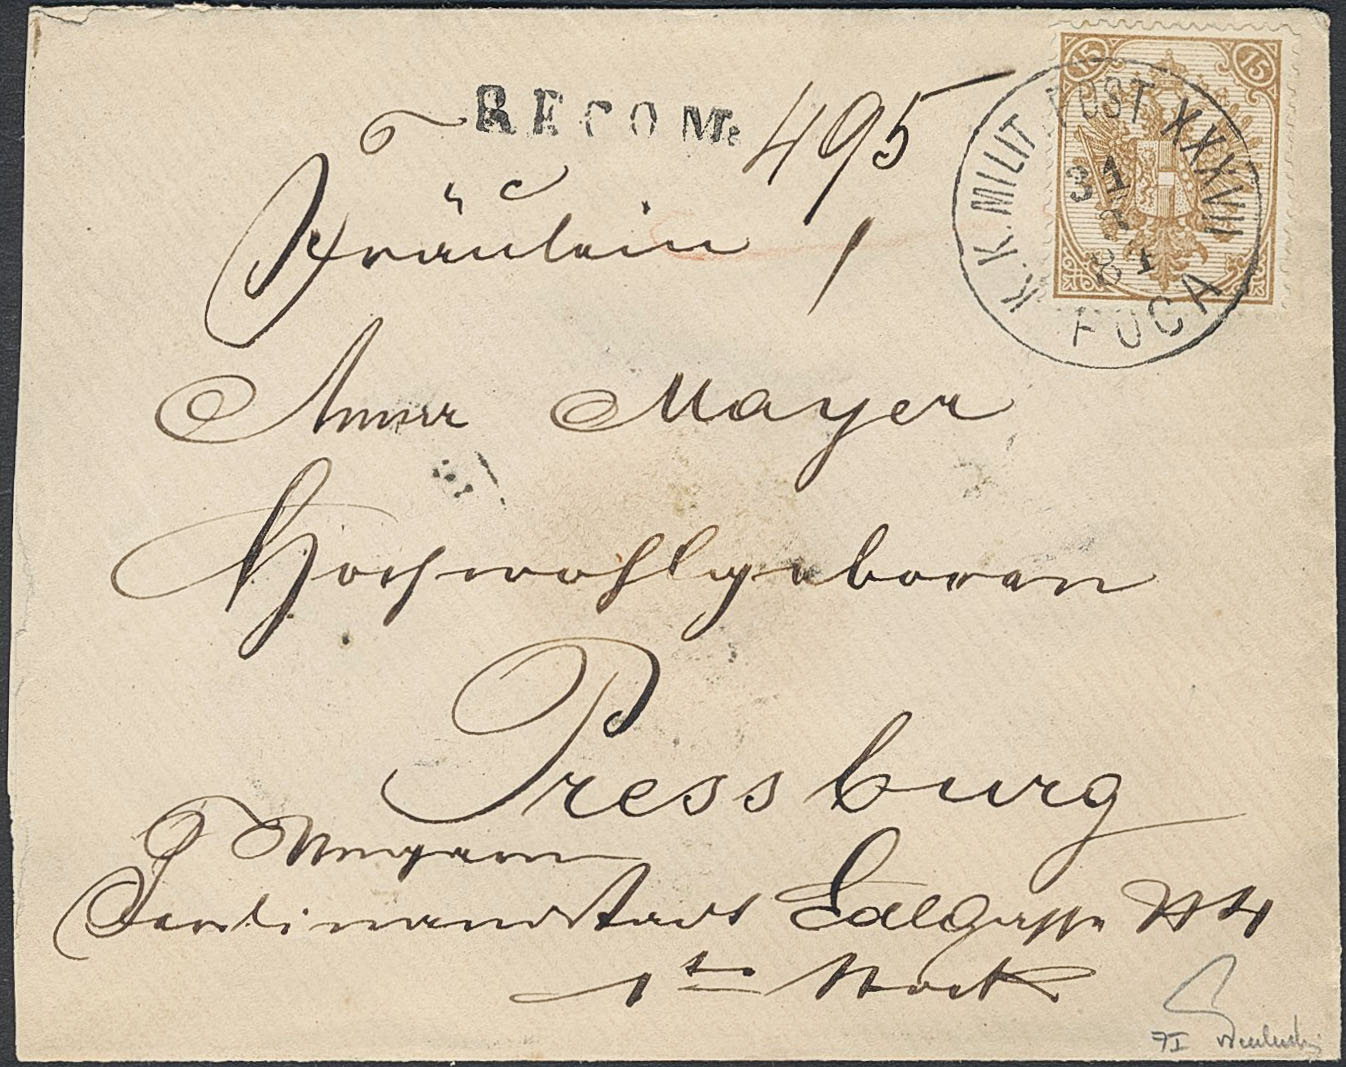 RECOM: 495
15 15
K.K. MILIT. POST XXXVII
31
8
81
FOCA
Fräulein
Anna Mayer
Hochwohlgeboren
Pressburg
Ungarn
Ferdinandstadt Edlgasse N 4
1ten Stock